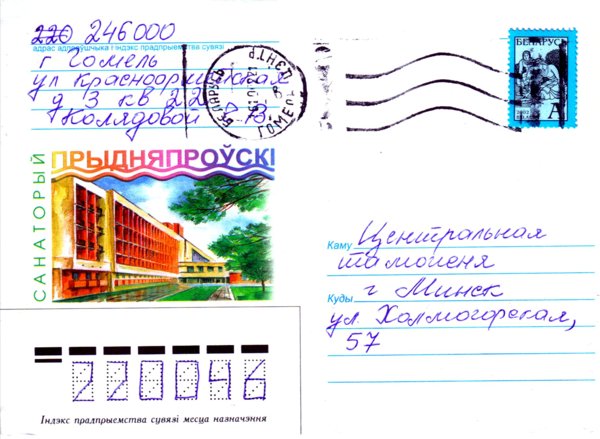 220 246000
адрас адпраўшчыка і індэкс прадпрыемства сувязі
г Гомель
ул Красноармейская
д 3 кв 22
Колядовой
САНАТОРЫЙ
ПРЫДНЯПРОЎСКІ
БЕЛАРУСЬ
ГОМЕЛЬ
БЕЛАРУСЬ
А
Каму Центральная
таможня
Куды г Минск
ул Холмогорская,
57
220046
Індэкс прадпрыемства сувязі месца назначэння